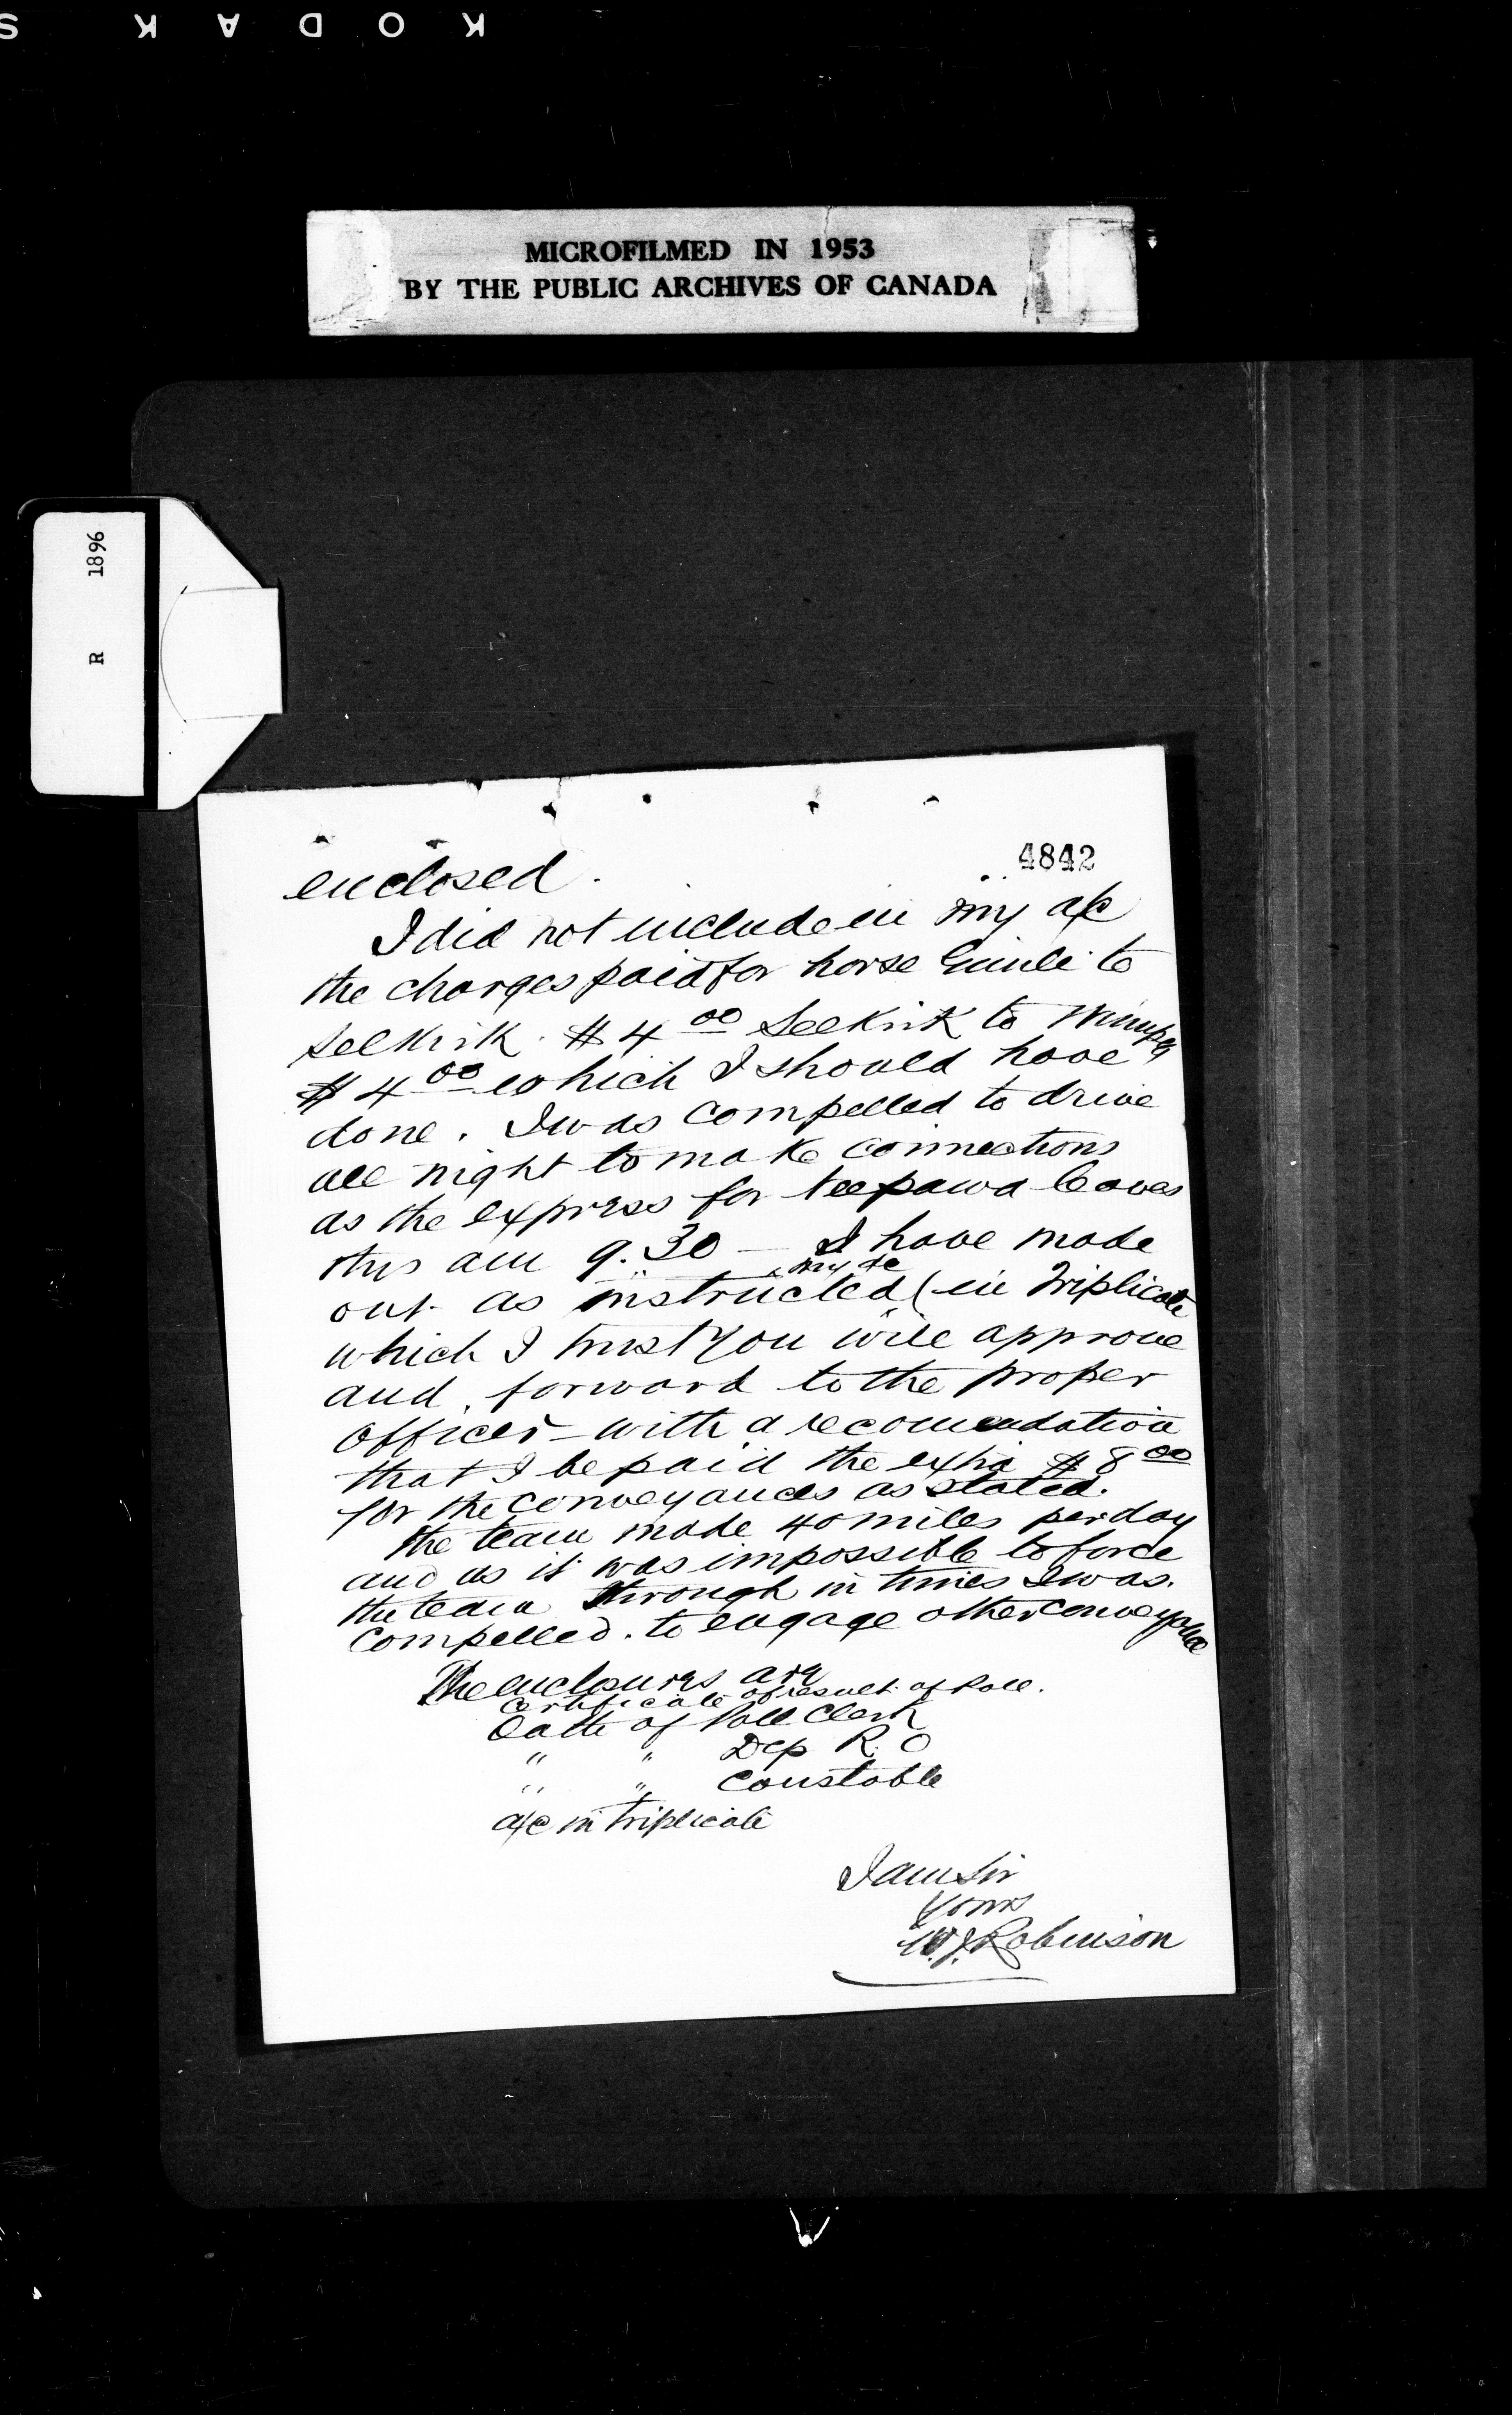 K O D A K S
MICROFILMED IN 1953
BY THE PUBLIC ARCHIVES OF CANADA
R 1896
4842
enclosed.
I did not include in my a/c
the charges paid for horse Gimli to
Selkirk. $4 00 Selkirk to Winnipeg
$4 00 which I should have
done. I was compelled to drive
all night to make connections
as the express for Neepawa leaves
this am 9.30 — I have made
my a/c
out as instructed (in Triplicate
which I trust you will approve
and forward to the proper
officer with a recomendation
that I be paid the extra $8 00
for the conveyances as stated.
The team made 40 miles per day
and as it was impossible to force
the team through in times I was
compelled to engage other conveyance
The enclosures are
Certificate of result of Poll.
Oath of Poll Clerk
" " Dep R. O
" " Constable
a/c in triplicate
I am Sir
Yours
W. J. Robinson